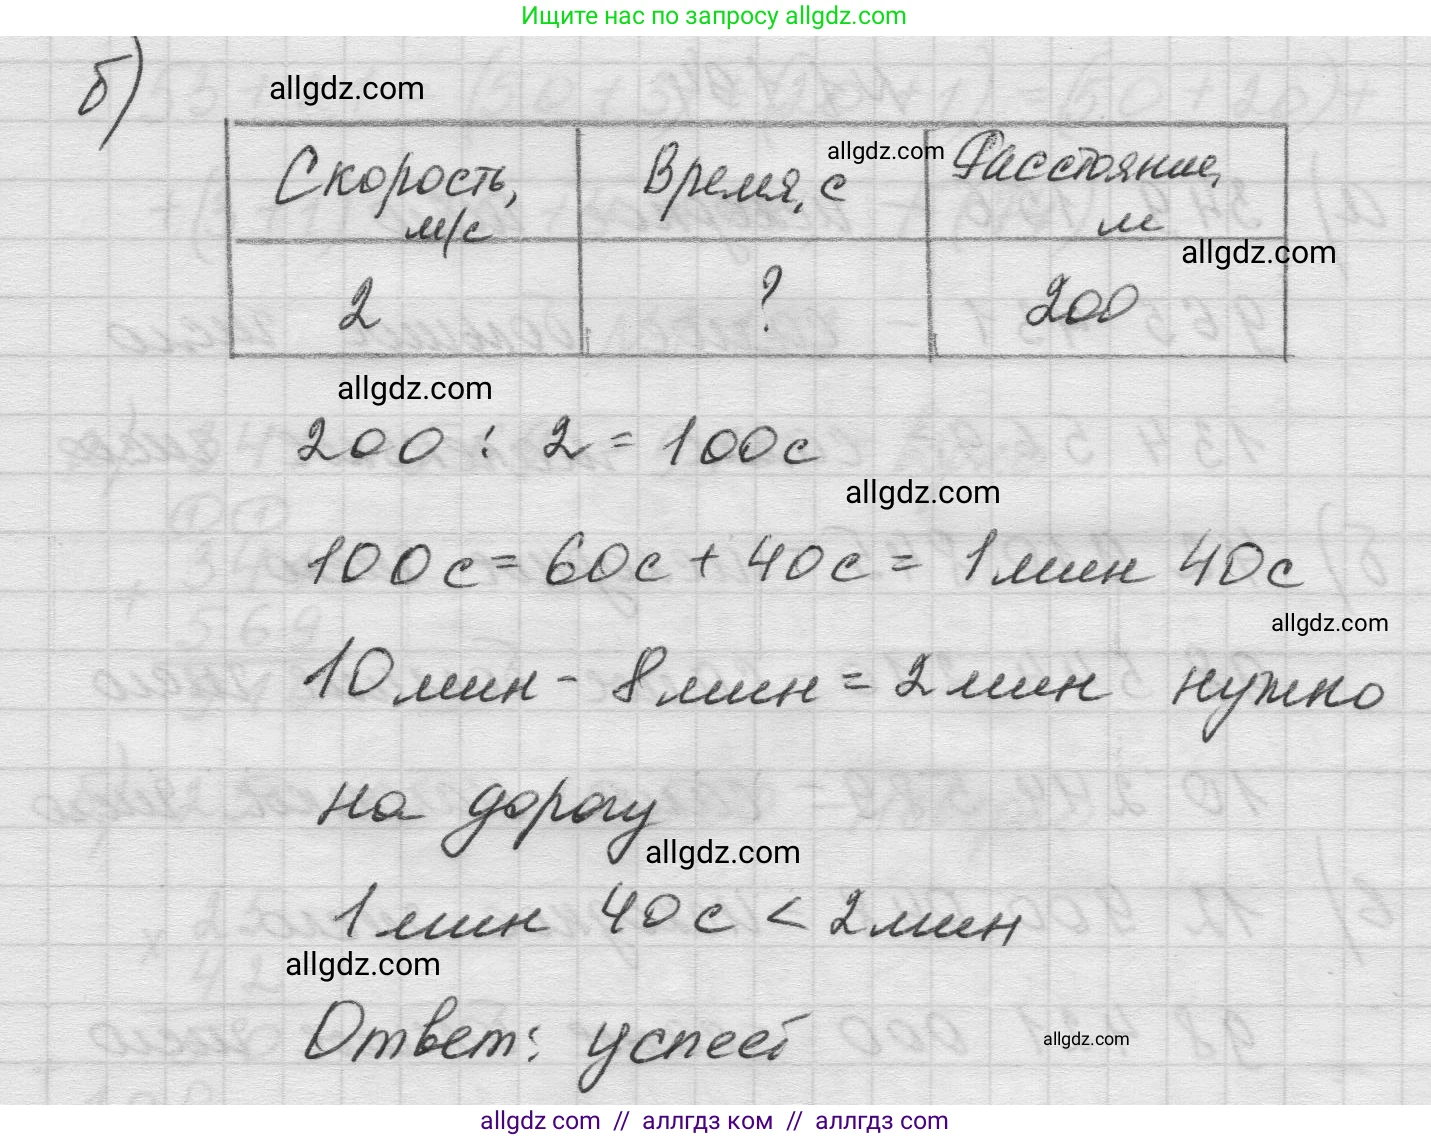 Ищите нас по запросу allgdz.com
б)
allgdz.com
Скорость, м/с
Время, с
allgdz.com
Расстояние, м
allgdz.com
2
?
200
allgdz.com
200 : 2 = 100с
allgdz.com
100с = 60с + 40с = 1мин 40с
allgdz.com
10мин - 8мин = 2мин нужно
на дорогу
allgdz.com
1мин 40с < 2мин
allgdz.com
Ответ: успеет
allgdz.com
allgdz.com // аллгдз ком // аллгдз com